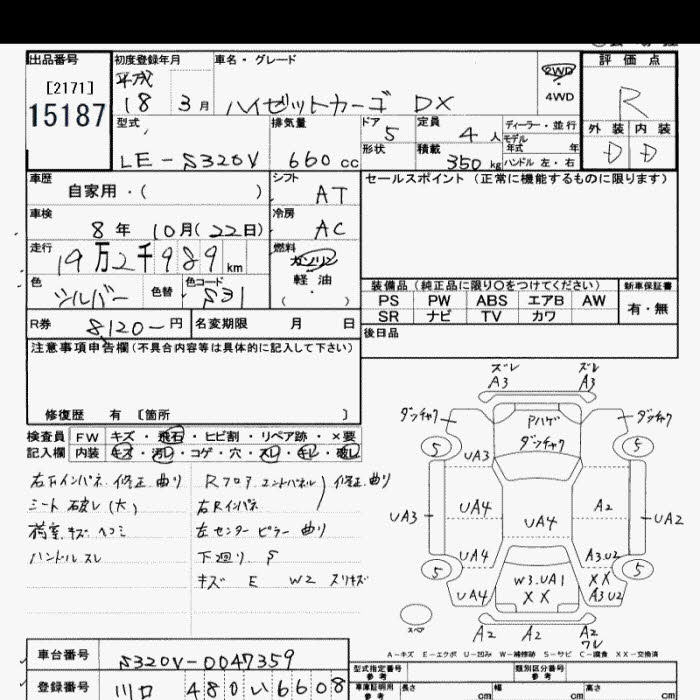 出品番号
[2171]
15187
初度登録年月
平成
18 3月
車名・グレード
ハイゼットカーゴ DX
2WD
4WD
評価点
R
外装 内装
D D
型式
LE-S320V
排気量
660 cc
ドア 5
形状
定員 4 人
積載 350 kg
ディーラー・並行
モデル年式 年
ハンドル 左・右
車歴
自家用・( )
シフト AT
セールスポイント (正常に機能するものに限ります)
車検
8年 10月(22日)
冷房 AC
走行
19万2千989 km
燃料
ガソリン
軽油
( )
色
シルバー
色替
色コード
S31
装備品(純正品に限り○をつけてください) 新車保証書
PS PW ABS エアB AW 有・無
SR ナビ TV カワ
R券 8120-円
名変期限 月 日
後日品
注意事項申告欄(不具合内容等は具体的に記入して下さい)
修復歴 有 〔箇所 〕
検査員記入欄
FW キズ・飛石・ヒビ割・リペア跡・×要
内装 キズ・汚レ・コゲ・穴・スレ・キレ・破レ
右下インパネ 修正 曲り
シート 破レ (大)
荷室 キズ ヘコミ
ハンドル スレ
Rフロア エンドパネル
右Rインパネ
修正 曲り
左センターピラー 曲り
下廻り S
キズ E W2 スリキズ
ズレ ズレ
A3 A3
ダッチャク Pハゲ ダッチャク
ダッチャク
5 5
UA3
UA3 UA4 UA4 A2 UA2
UA4 A3.U2
5 5
W3.UA1 XX
UA4 XX A3U2
スペア
A2 A2 A2
ワレ
A-キズ E-エクボ U-凹み W-補修跡 S-サビ C-腐食 XX-交換済
車台番号
S320V-0047359
登録番号
川口 480 い 6608
型式指定番号 参考
類別区分番号 参考
車庫証明用 参考
長さ cm
幅 cm
高さ cm